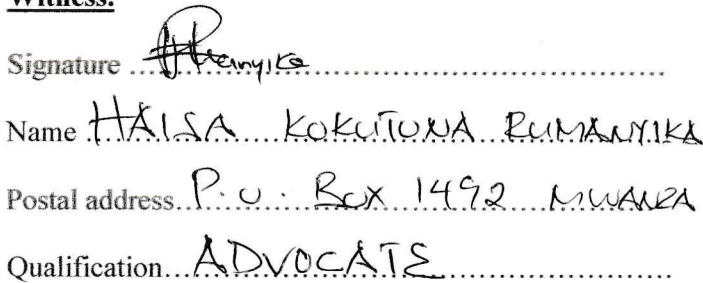 Witness:
Signature
Name HAISA KOKUTONA RUMANYIKA
Postal address P.O. Box 1492 MWANZA
Qualification ADVOCATE